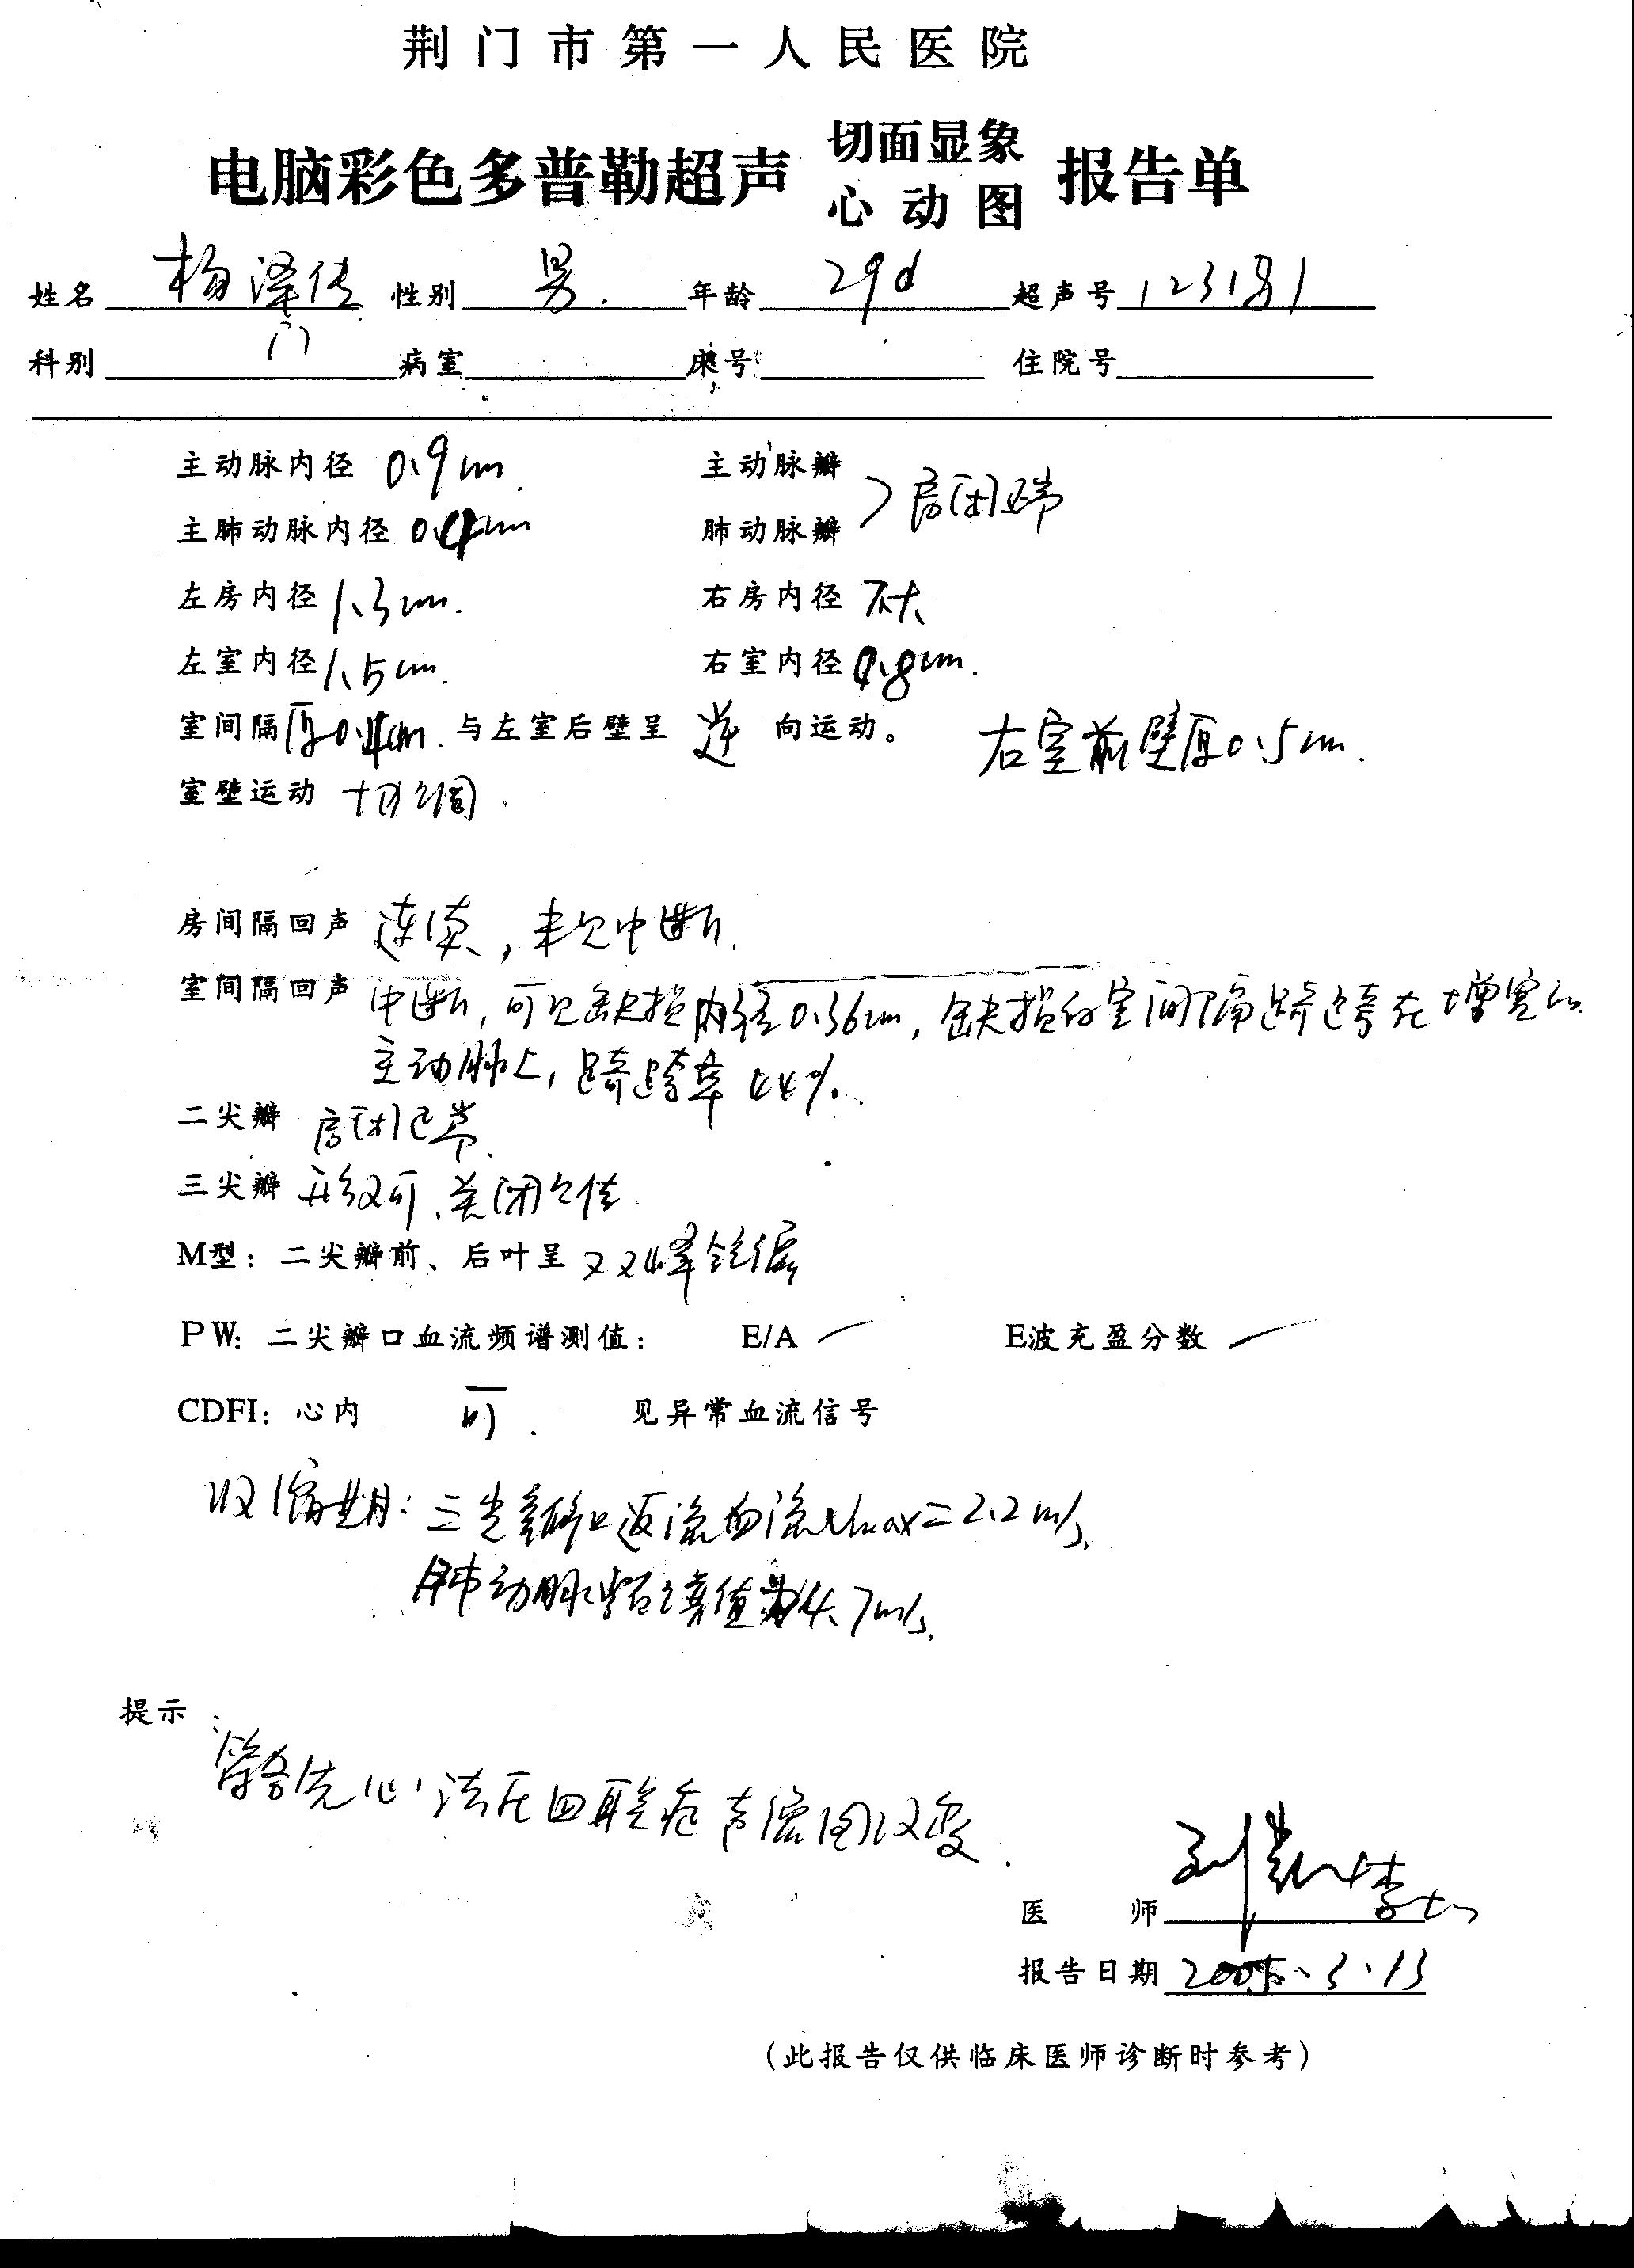 荆门市第一人民医院
电脑彩色多普勒超声 切面显象 心动图 报告单
姓名 杨泽传 性别 男. 年龄 29d 超声号
科别 门 病室 床号 住院号
主动脉内径 0.9cm. 主动脉瓣
主肺动脉内径 0.4cm 肺动脉瓣 > 启闭正常
左房内径 1.3cm. 右房内径 不大
左室内径 1.5cm. 右室内径 0.8cm.
室间隔 厚0.4cm. 与左室后壁呈 逆 向运动。 右室前壁厚0.5cm.
室壁运动 协调.
房间隔回声 连续, 未见中断.
室间隔回声 中断, 可见缺损内径0.36cm, 缺损的室间隔骑跨在增宽的
主动脉上, 骑跨率44%.
二尖瓣 启闭正常.
三尖瓣 形态可、关闭欠佳.
M型: 二尖瓣前、后叶呈 双峰
PW: 二尖瓣口血流频谱测值: E/A — E波充盈分数 —
CDFI: 心内 可. 见异常血流信号
收缩期: 三尖瓣口返流血流Vmax=2.2m/s.
肺动脉频谱值为4.7m/s.
提示:
符合先心, 法氏四联症声像图改变.
医 师
报告日期 2005.3.13
(此报告仅供临床医师诊断时参考)